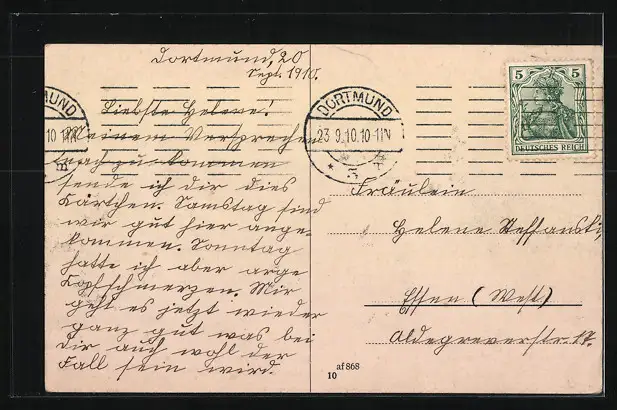 Dortmund, 20
Sept. 1910.
Liebste Helene!
Meinem Versprechen
nach zu kommen
sende ich dir dies
Kärtchen. Samstag sind
wir gut hier ange-
kommen. Sonntag
hatte ich aber arge
Kopfschmerzen. Mir
geht es jetzt wieder
ganz gut was bei
dir auch wohl der
Fall sein wird.
MUND
10-11N
DORTMUND
23.9.10.10-11N
5 5
DEUTSCHES REICH
Fräulein
Helene Steffanski,
Essen (West)
Aldegreverstr. 17.
af 868
10